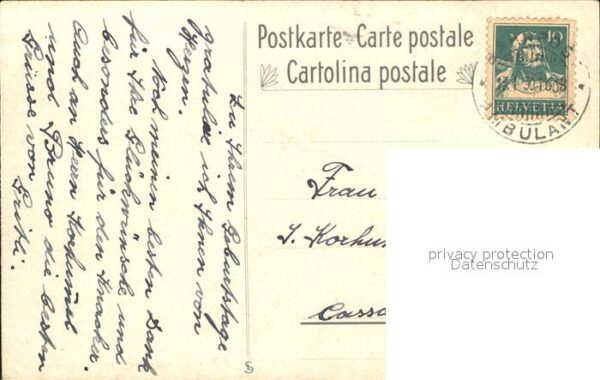 Postkarte - Carte postale
Cartolina postale
10
HELVETIA
AMBULANT
Zu Ihrem Geburtstage
gratuliere ich Ihnen von
Herzen.
Noch meinen besten Dank
für Ihre Glückwünsche und
besonders für den Knacker.
Auch an Herrn
und Bruno die besten
Grüsse von
Frau
S. Korhum
Cassa
privacy protection
Datenschutz